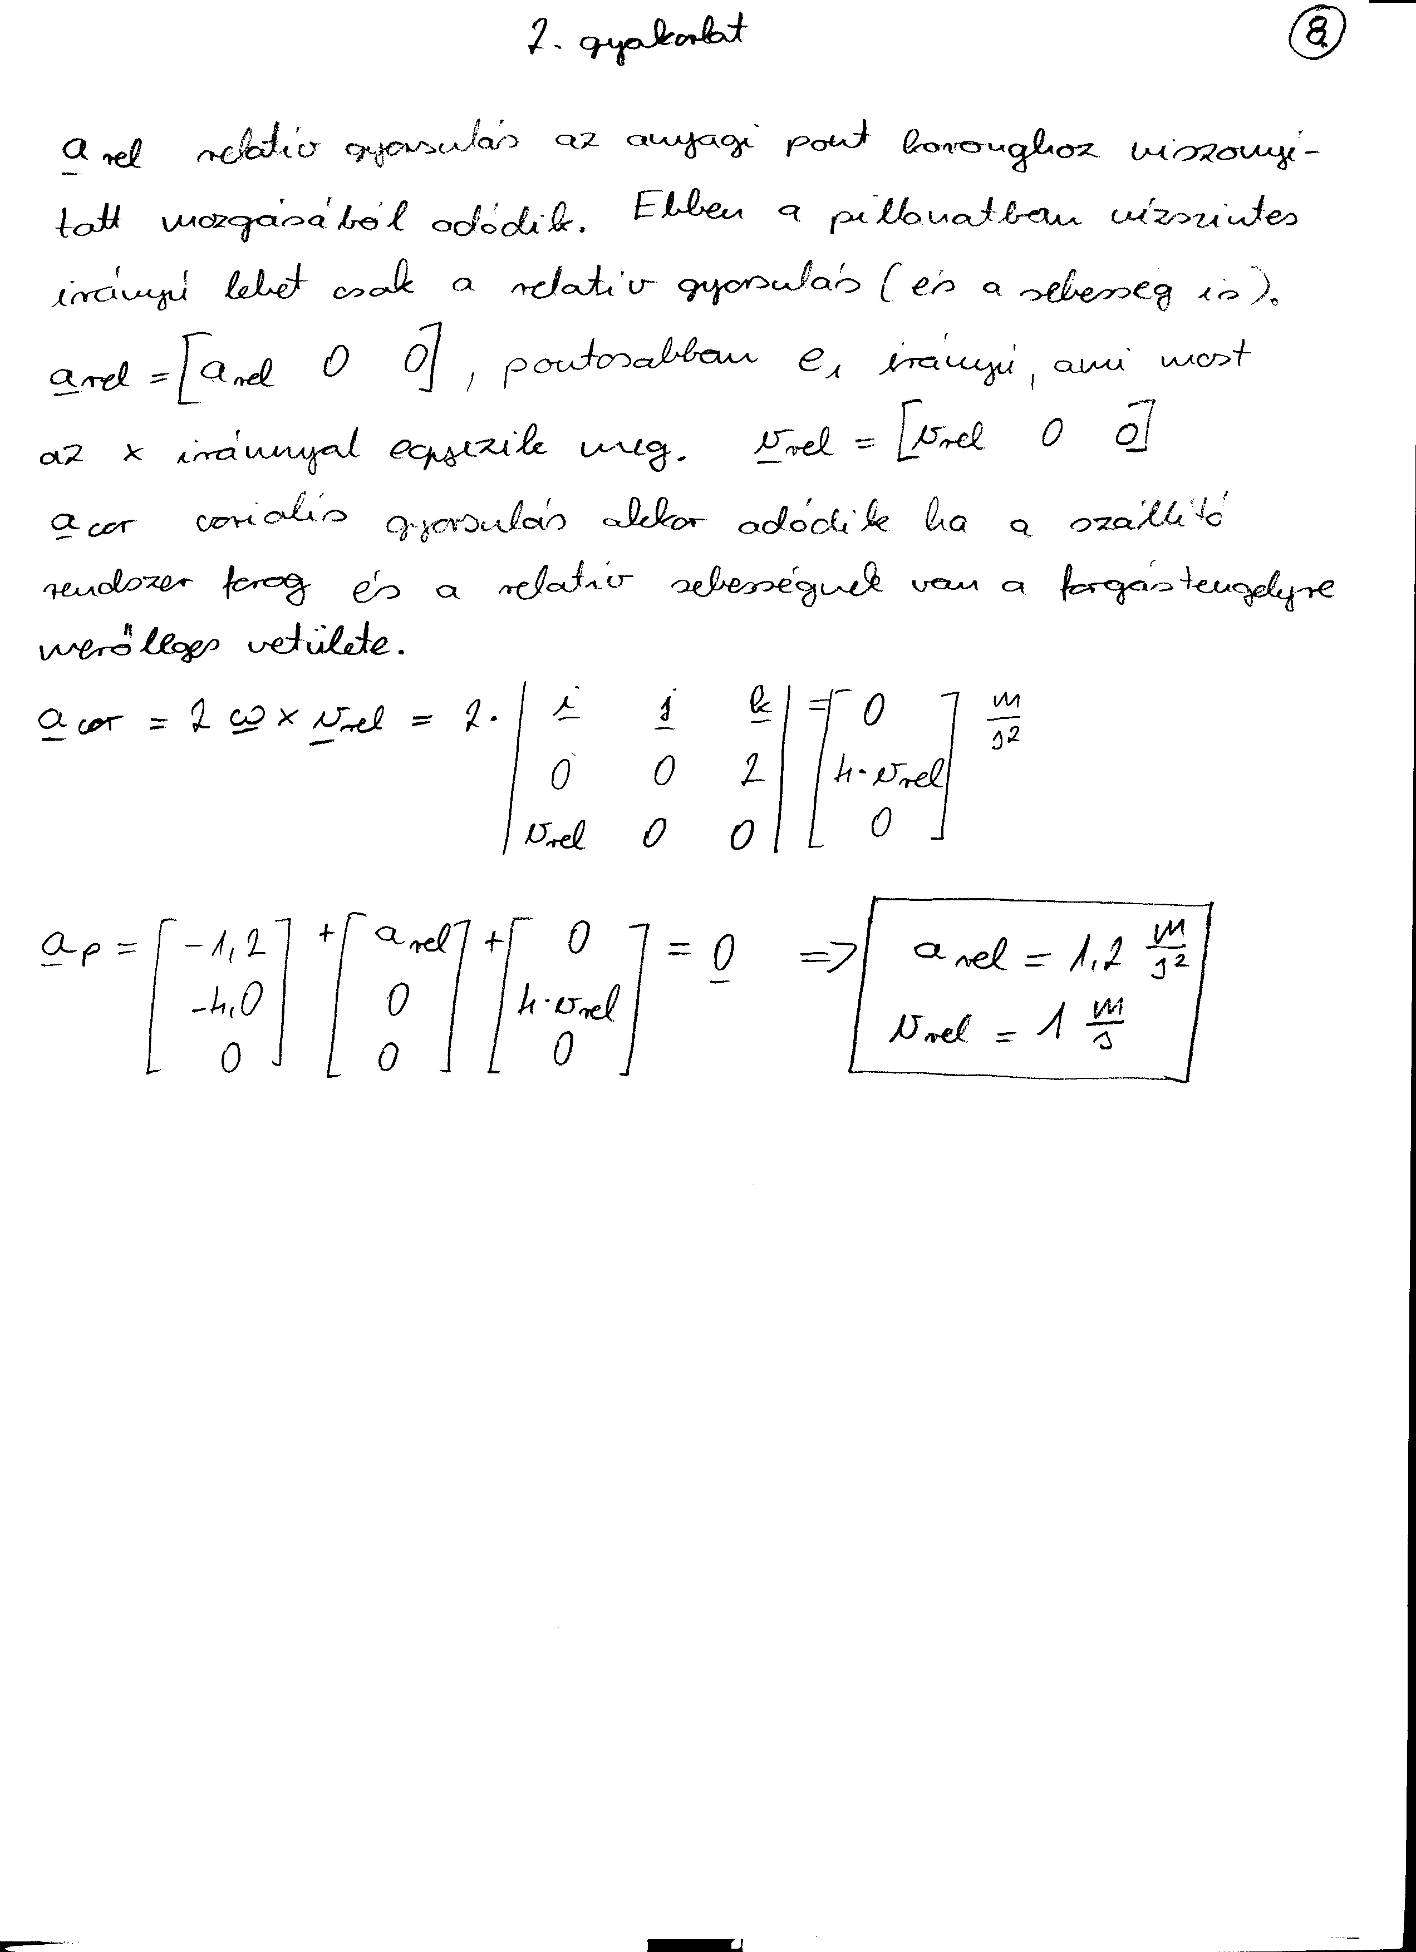 2. gyakorlat
8.
a rel relatív gyorsulás az anyagi pont koronghoz viszonyí-
tott mozgásából adódik. Ebben a pillanatban vízszintes
irányú lehet csak a relatív gyorsulás (és a sebesség is).
a rel = [a rel 0 0], pontosabban e₁ irányú, ami most
az x iránnyal egyezik meg. v rel = [v rel 0 0]
a cor coriolis gyorsulás akkor adódik ha a szállító
rendszer forog és a relatív sebességnek van a forgástengelyre
merőleges vetülete.
a cor = 2 ω × v rel = 2 · | i j k | = [ 0 ] m/s²
| 0 0 2 | [ 4·v rel ]
| v rel 0 0 | [ 0 ]
a p = [ -1,2 ] + [ a rel ] + [ 0 ] = 0 => a rel = 1,2 m/s²
[ -4,0 ] [ 0 ] [ 4·v rel ] v rel = 1 m/s
[ 0 ] [ 0 ] [ 0 ]